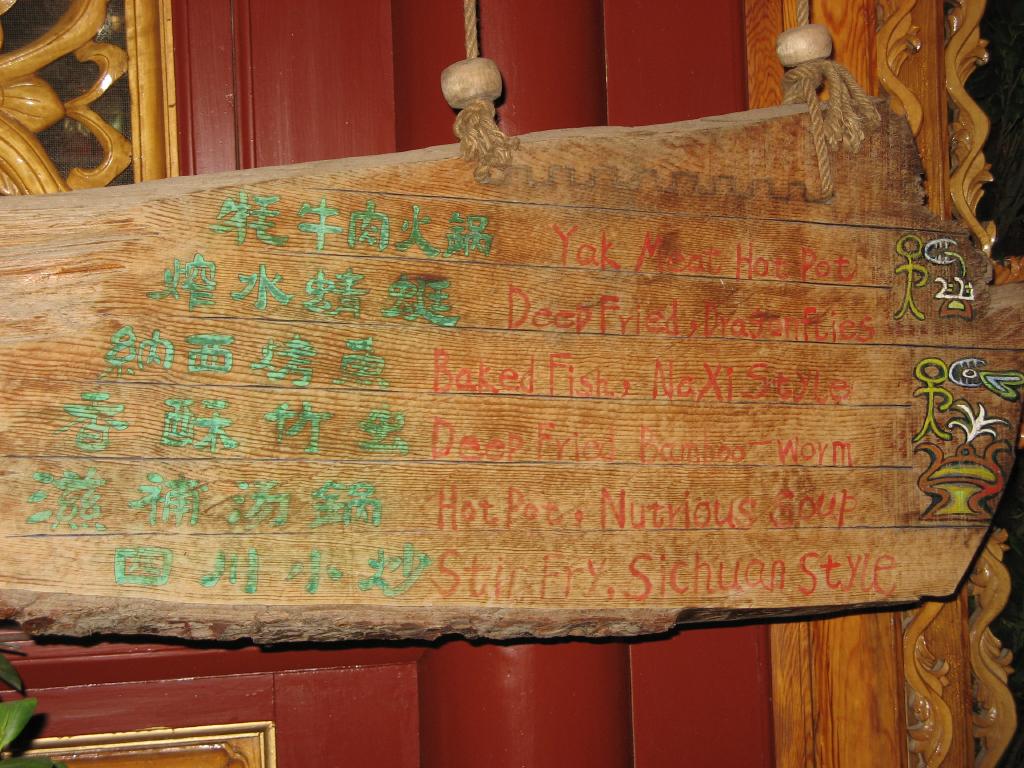 牦牛肉火鍋 Yak Meat Hot Pot
炸水蜻蜓 Deep Fried, Dragonflies
納西烤魚 Baked Fish, NaXi Style
香酥竹虫 Deep Fried Bamboo-worm
滋補汤鍋 Hot Pot, Nutrious Soup
四川小炒 Stir Fry, Sichuan Style